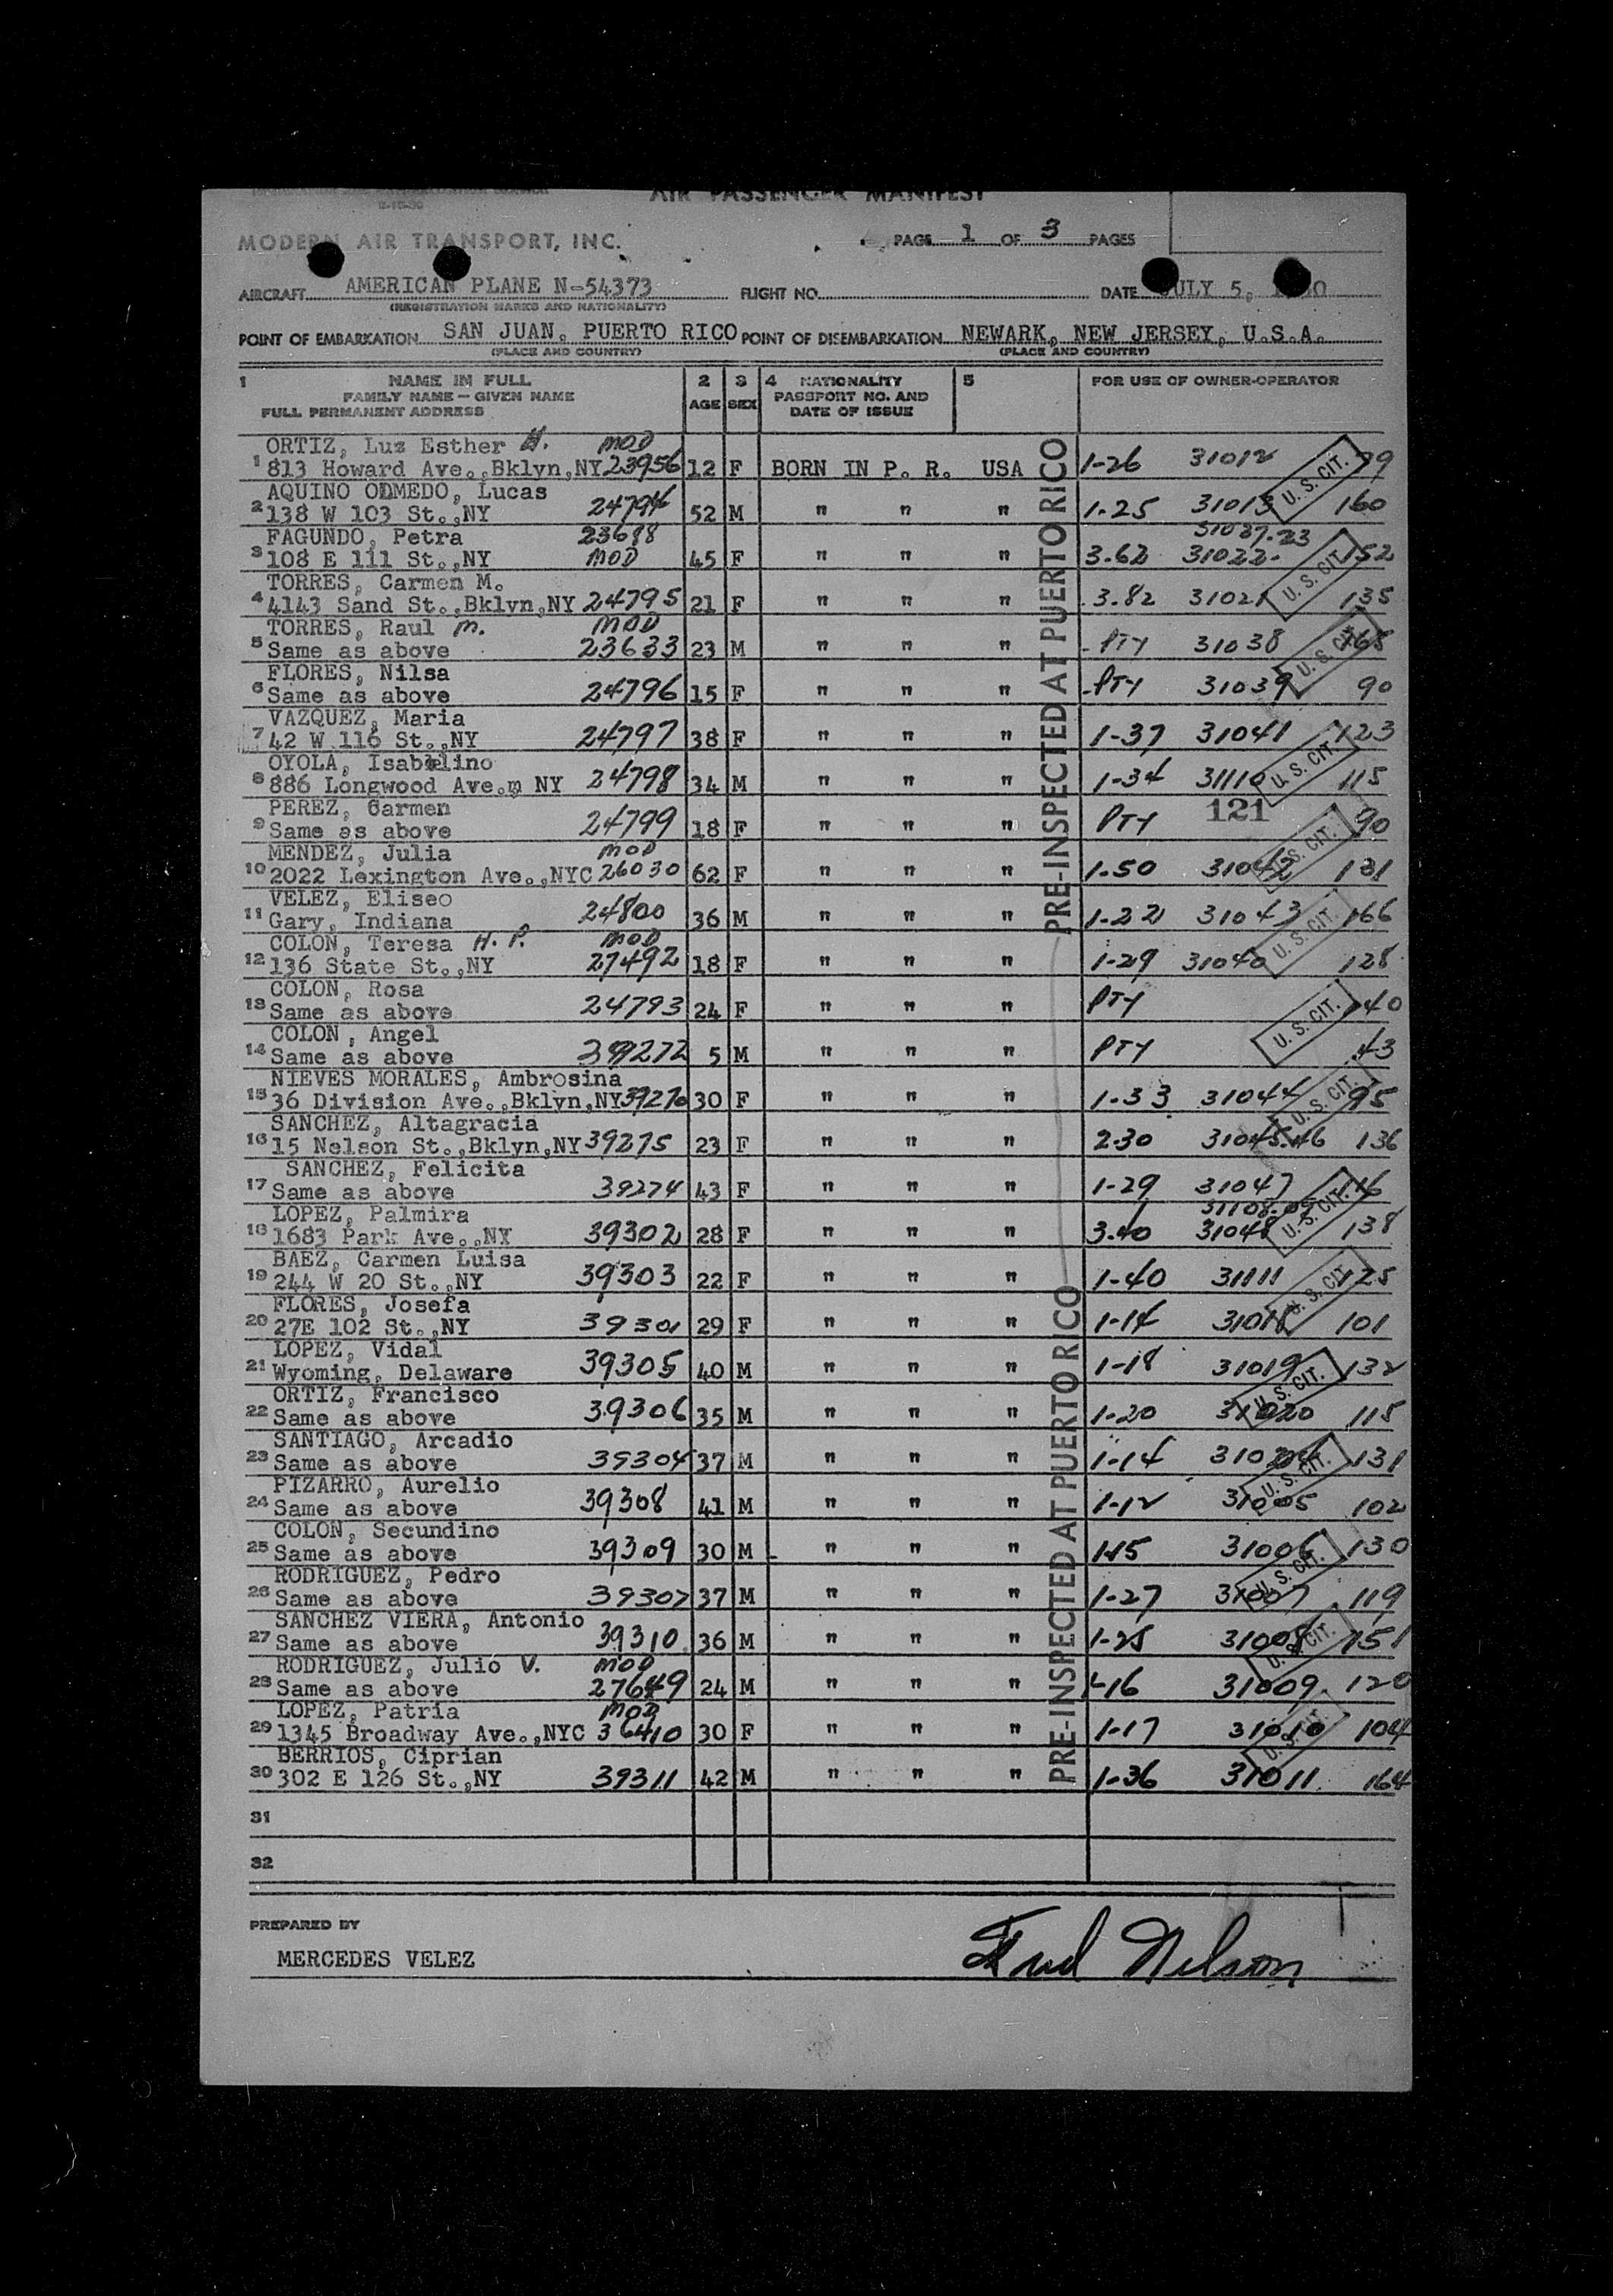 AIR PASSENGER MANIFEST
MODERN AIR TRANSPORT, INC.
PAGE 1 OF 3 PAGES
AIRCRAFT AMERICAN PLANE N-54373 FLIGHT NO. DATE JULY 5,
(REGISTRATION MARKS AND NATIONALITY)
POINT OF EMBARKATION SAN JUAN, PUERTO RICO POINT OF DISEMBARKATION NEWARK, NEW JERSEY, U.S.A.
(PLACE AND COUNTRY) (PLACE AND COUNTRY)
1 NAME IN FULL 2 3 4 NATIONALITY 5 FOR USE OF OWNER-OPERATOR
FAMILY NAME - GIVEN NAME AGE SEX PASSPORT NO. AND
FULL PERMANENT ADDRESS DATE OF ISSUE
ORTIZ, Luz Esther H. MOD
1 813 Howard Ave.,Bklyn,NY 23956 12 F BORN IN P. R. USA 1-26 31012 79 U.S. CIT.
AQUINO OLMEDO, Lucas
2 138 W 103 St.,NY 24794 52 M " " " 1-25 31013 160
FAGUNDO, Petra 23688 31037.23
3 108 E 111 St.,NY MOD 45 F " " " 3-62 31022- 152 U.S. CIT.
TORRES, Carmen M.
4 4143 Sand St.,Bklyn,NY 24795 21 F " " " 3.82 31021 135
TORRES, Raul M. MOD
5 Same as above 23633 23 M " " " PTY 31038 165 U.S. CIT.
FLORES, Nilsa
6 Same as above 24796 15 F " " " PTY 31039 90
VAZQUEZ, Maria
7 42 W 116 St.,NY 24797 38 F " " " 1-37 31041 123 U.S. CIT.
OYOLA, Isabelino
8 886 Longwood Ave.m NY 24798 34 M " " " 1-34 31110 115
PEREZ, Carmen 121
9 Same as above 24799 18 F " " " PTY 90 U.S. CIT.
MENDEZ, Julia MOD
10 2022 Lexington Ave.,NYC 26030 62 F " " " 1-50 31042 131
VELEZ, Eliseo
11 Gary, Indiana 24800 36 M " " " 1-22 31043 166 U.S. CIT.
COLON, Teresa H. P. MOD
12 136 State St.,NY 27492 18 F " " " 1-29 31040 128
COLON, Rosa
13 Same as above 24793 24 F " " " PTY 140 U.S. CIT.
COLON, Angel
14 Same as above 39272 5 M " " " PTY 43
NIEVES MORALES, Ambrosina
15 36 Division Ave.,Bklyn,NY 39270 30 F " " " 1-33 31044 95 U.S. CIT.
SANCHEZ, Altagracia
16 15 Nelson St.,Bklyn,NY 39275 23 F " " " 2-30 31045.46 136
SANCHEZ, Felicita
17 Same as above 39274 43 F " " " 1-29 31047 116 U.S. CIT.
LOPEZ, Palmira 31108.09
18 1683 Park Ave.,NY 39302 28 F " " " 3.40 31048 138
BAEZ, Carmen Luisa
19 244 W 20 St.,NY 39303 22 F " " " 1-40 31111 125 U.S. CIT.
FLORES, Josefa
20 27E 102 St.,NY 39301 29 F " " " 1-14 31018 101
LOPEZ, Vidal
21 Wyoming, Delaware 39305 40 M " " " 1-18 31019 132 U.S. CIT.
ORTIZ, Francisco
22 Same as above 39306 35 M " " " 1-20 31020 115
SANTIAGO, Arcadio
23 Same as above 39304 37 M " " " 1-14 131 U.S. CIT.
PIZARRO, Aurelio
24 Same as above 39308 41 M " " " 1-12 31005 102
COLON, Secundino
25 Same as above 39309 30 M " " " 1-15 31006 130 U.S. CIT.
RODRIGUEZ, Pedro
26 Same as above 39307 37 M " " " 1-27 31007 119
SANCHEZ VIERA, Antonio
27 Same as above 39310 36 M " " " 1-25 31008 151 U.S. CIT.
RODRIGUEZ, Julio V. MOD
28 Same as above 27649 24 M " " " 1-16 31009 120
LOPEZ, Patria MOD
29 1345 Broadway Ave.,NYC 36410 30 F " " " 1-17 31010 104 U.S. CIT.
BERRIOS, Ciprian
30 302 E 126 St.,NY 39311 42 M " " " 1-36 31011 164
31
32
PRE-INSPECTED AT PUERTO RICO
PRE-INSPECTED AT PUERTO RICO
PREPARED BY
MERCEDES VELEZ
Fred Nelson